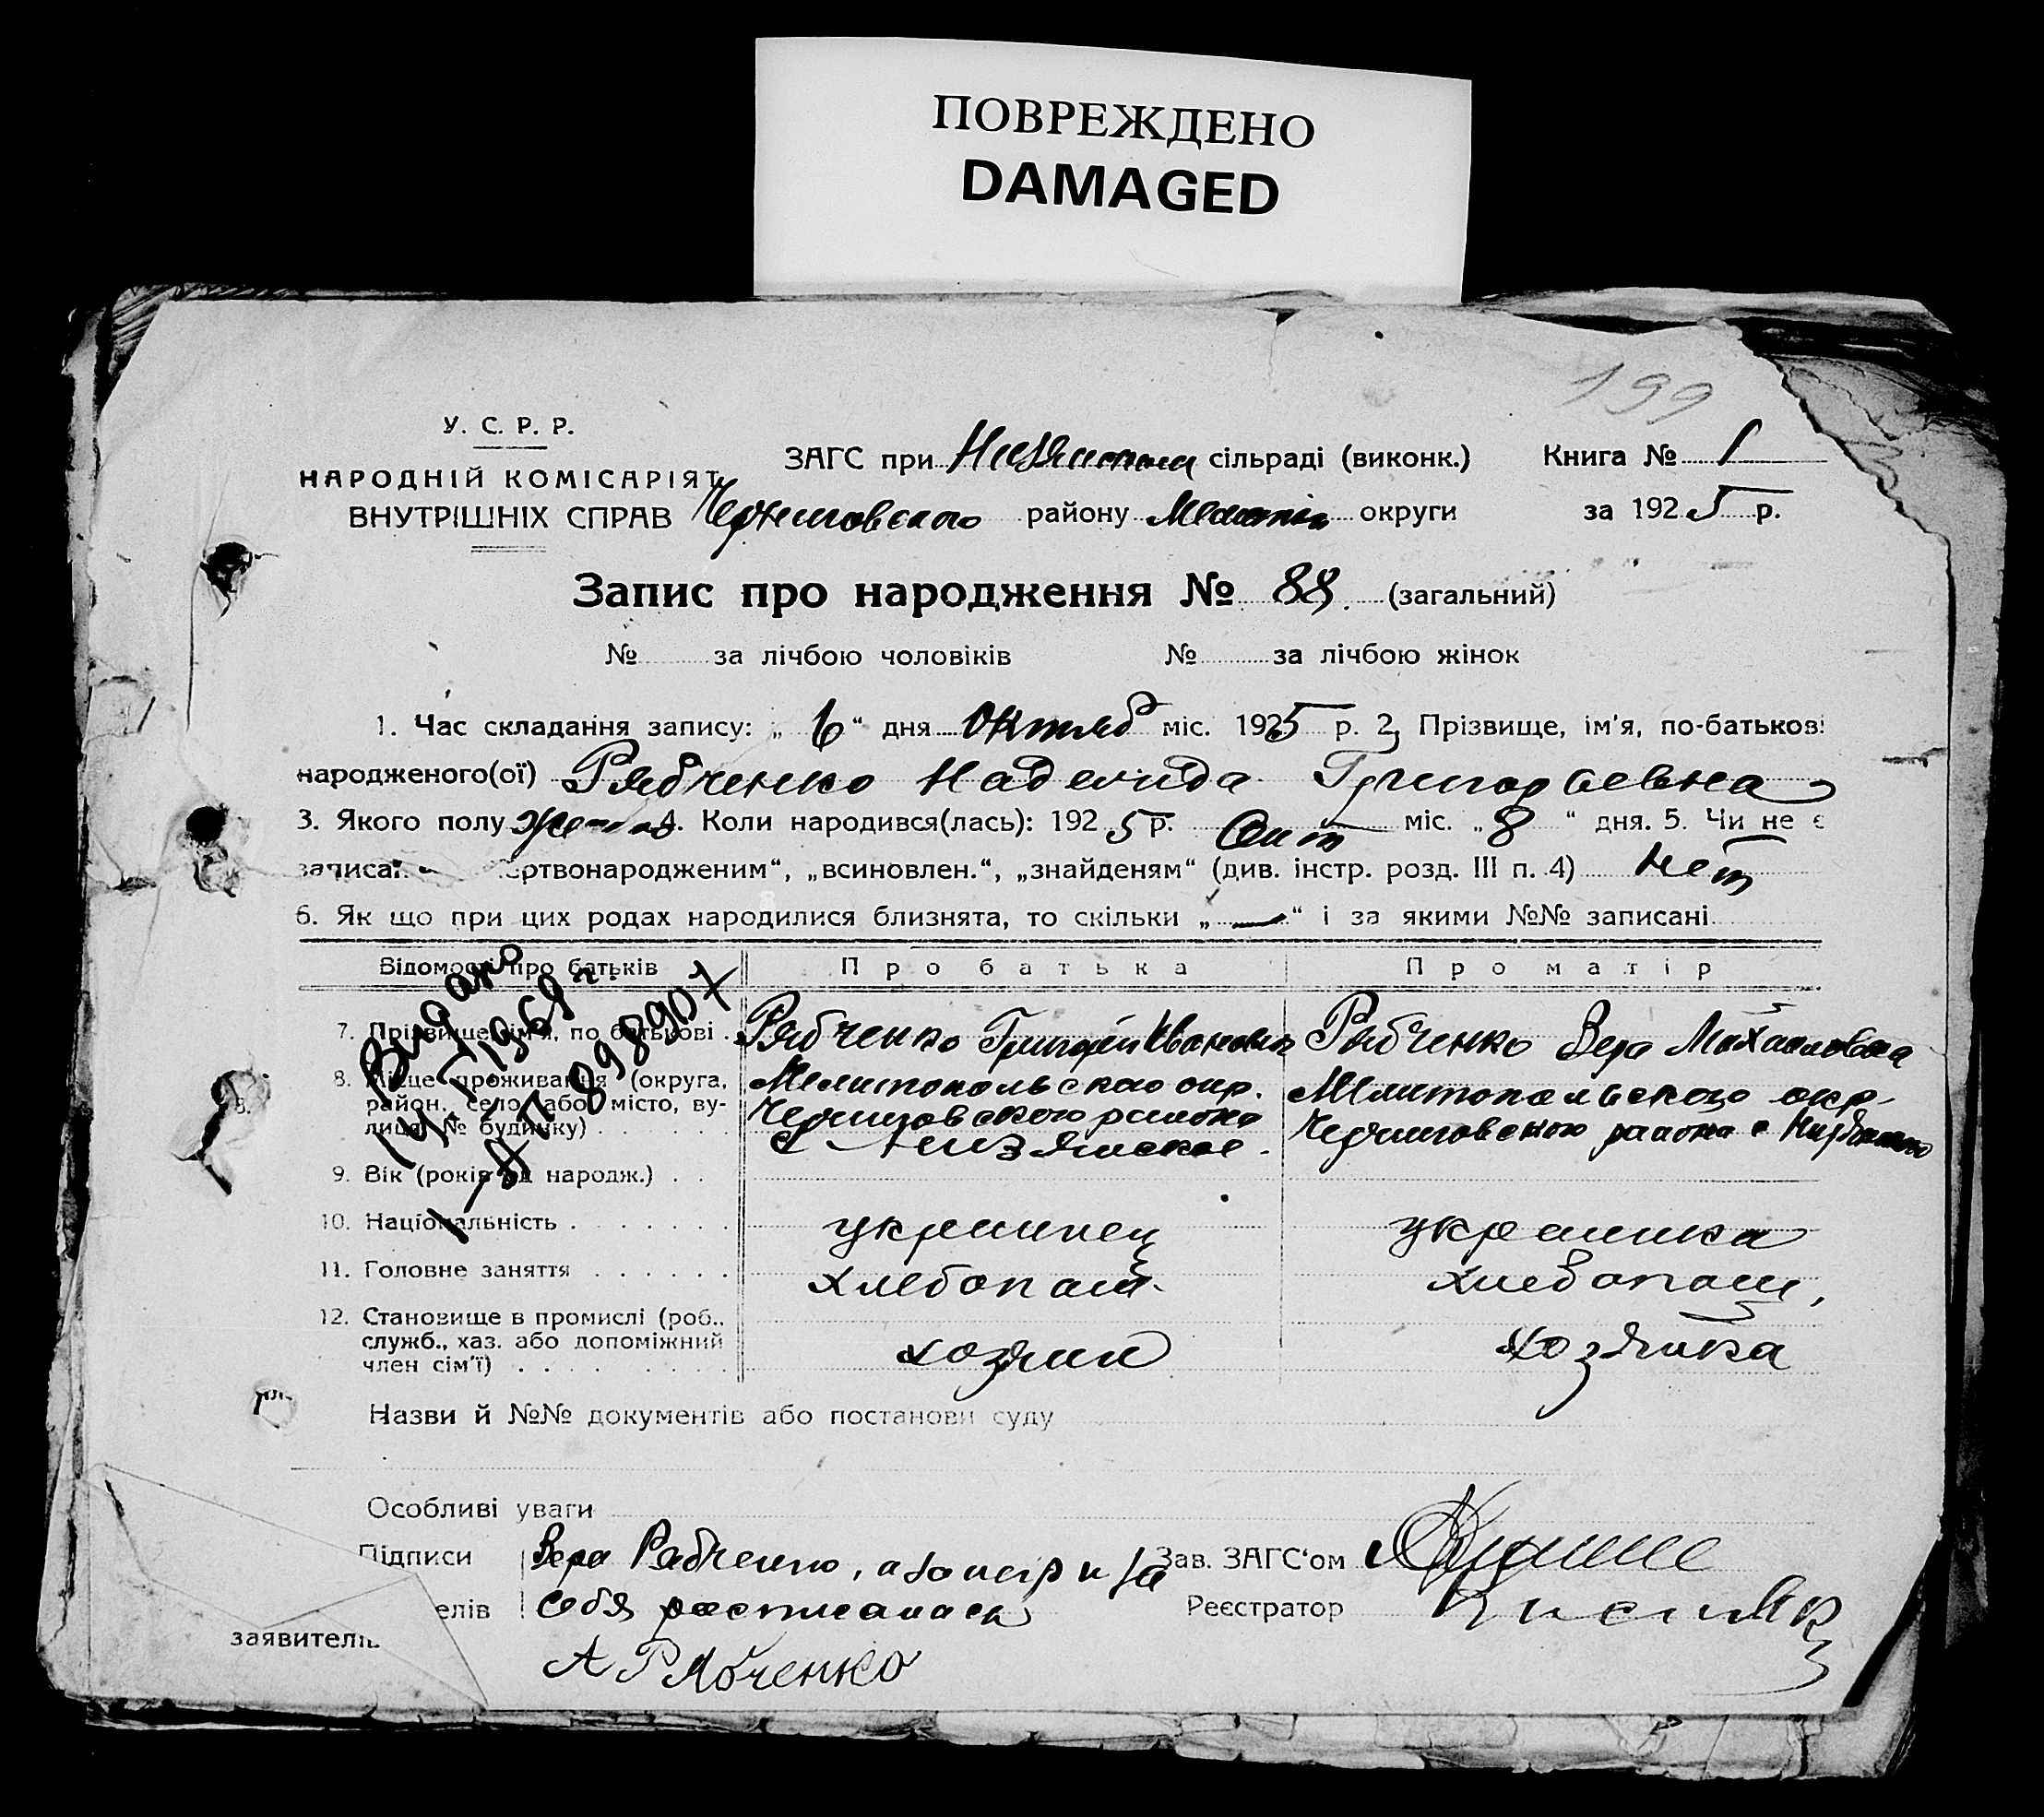 ПОВРЕЖДЕНО
DAMAGED
199
У. С. Р. Р.
НАРОДНІЙ КОМІСАРІЯТ
ВНУТРІШНІХ СПРАВ
ЗАГС при сільраді (виконк.) Книга № 1
Черниговского району округи за 1925 р.
Запис про народження № 88. (загальний)
№ за лічбою чоловіків № за лічбою жінок
1. Час складання запису: „6“ дня Октяб міс. 1925 р. 2, Прізвище, ім'я, по-батькові
народженого(ої) Рябченко Надежда Григорьевна
3. Якого полу 4. Коли народився(лась): 1925 р. Сент міс. „8“ дня. 5. Чи не є
записан ертвонародженим“, „всиновлен.“, „знайденям“ (див. інстр. розд. III п. 4) Нет
6. Як що при цих родах народилися близнята, то скільки „—“ і за якими №№ записані
Відомості про батьків Про батька Про матір
7. Прізвище, ім'я, по батькові . Рябченко Григорий Иванович Рябченко Вера Михайловна
8. Місце проживання (округа, район, село або місто, вулиця, № будинку)
Мелитопольского окр. Мелитопольского окр.
Черниговского района Черниговского района с
Видано
1969 г.
898907
9. Вік (років від народж.) . .
10. Національність . украинец украинка
11. Головне заняття хлебопаш. хлебопаш,
12. Становище в промислі (роб., служб., хаз. або допоміжний член сім'ї) хозяин хозяйка
Назви й №№ документів або постанови суду
Особливі уваги
Підписи Вера Рабченко, и за Зав. ЗАГС'ом
елів себя расписалась Реєстратор
заявителів
А Рябченко